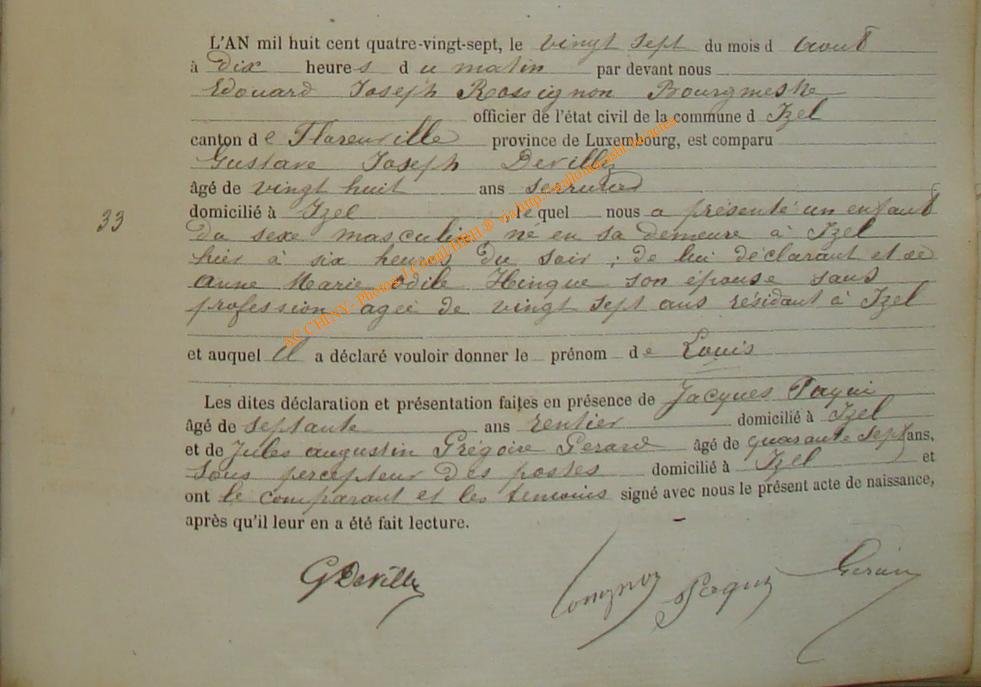 L'AN mil huit cent quatre-vingt-sept, le vingt sept du mois d aout
à dix heures du matin par devant nous
Edouard Joseph Rossignon Bourgmestre
officier de l'état civil de la commune d Izel
canton de Florenville province de Luxembourg, est comparu
Gustave Joseph Devilly
âgé de vingt huit ans serrurier
domicilié à Izel lequel nous a présenté un enfant
33
du sexe masculin né en sa demeure à Izel
hier à six heures du soir ; de lui déclarant et de
Anne Marie Odile Hinque son épouse sans
profession agée de vingt sept ans résidant à Izel
et auquel il a déclaré vouloir donner le prénom de Louis
Les dites déclaration et présentation faites en présence de Jacques
âgé de septante ans rentier domicilié à Izel
et de Jules augustin Grégoire Gerard âgé de quarante sept ans,
sous percepteur des postes domicilié à Izel et
ont le comparant et les temoins signé avec nous le présent acte de naissance,
après qu'il leur en a été fait lecture.
GDevilly